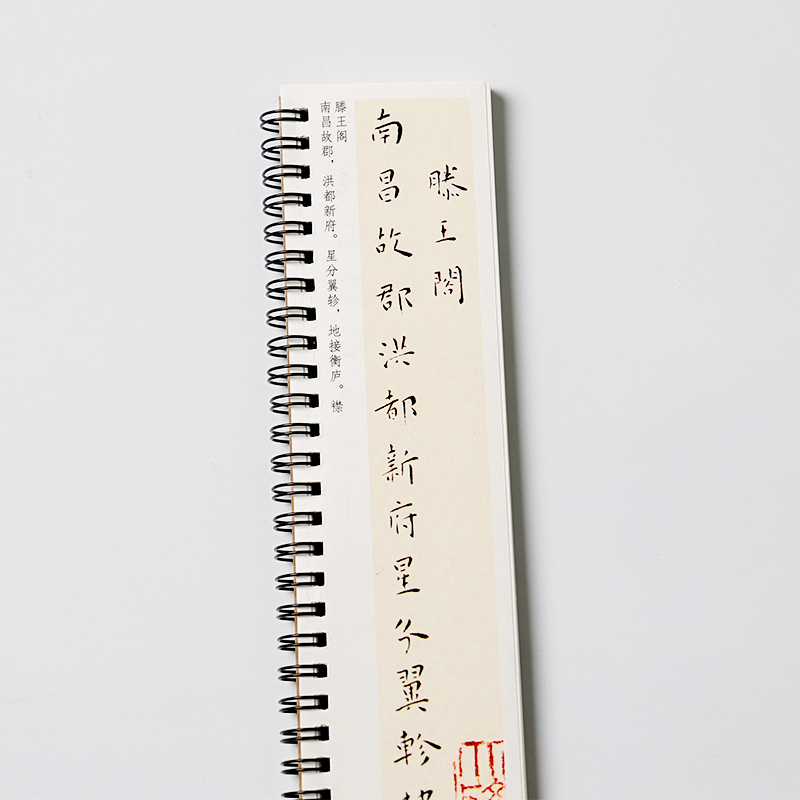 滕王阁
南昌故郡，洪都新府。星分翼轸，地接衡庐。襟
滕王閣
南昌故郡洪都新府星分翼軫